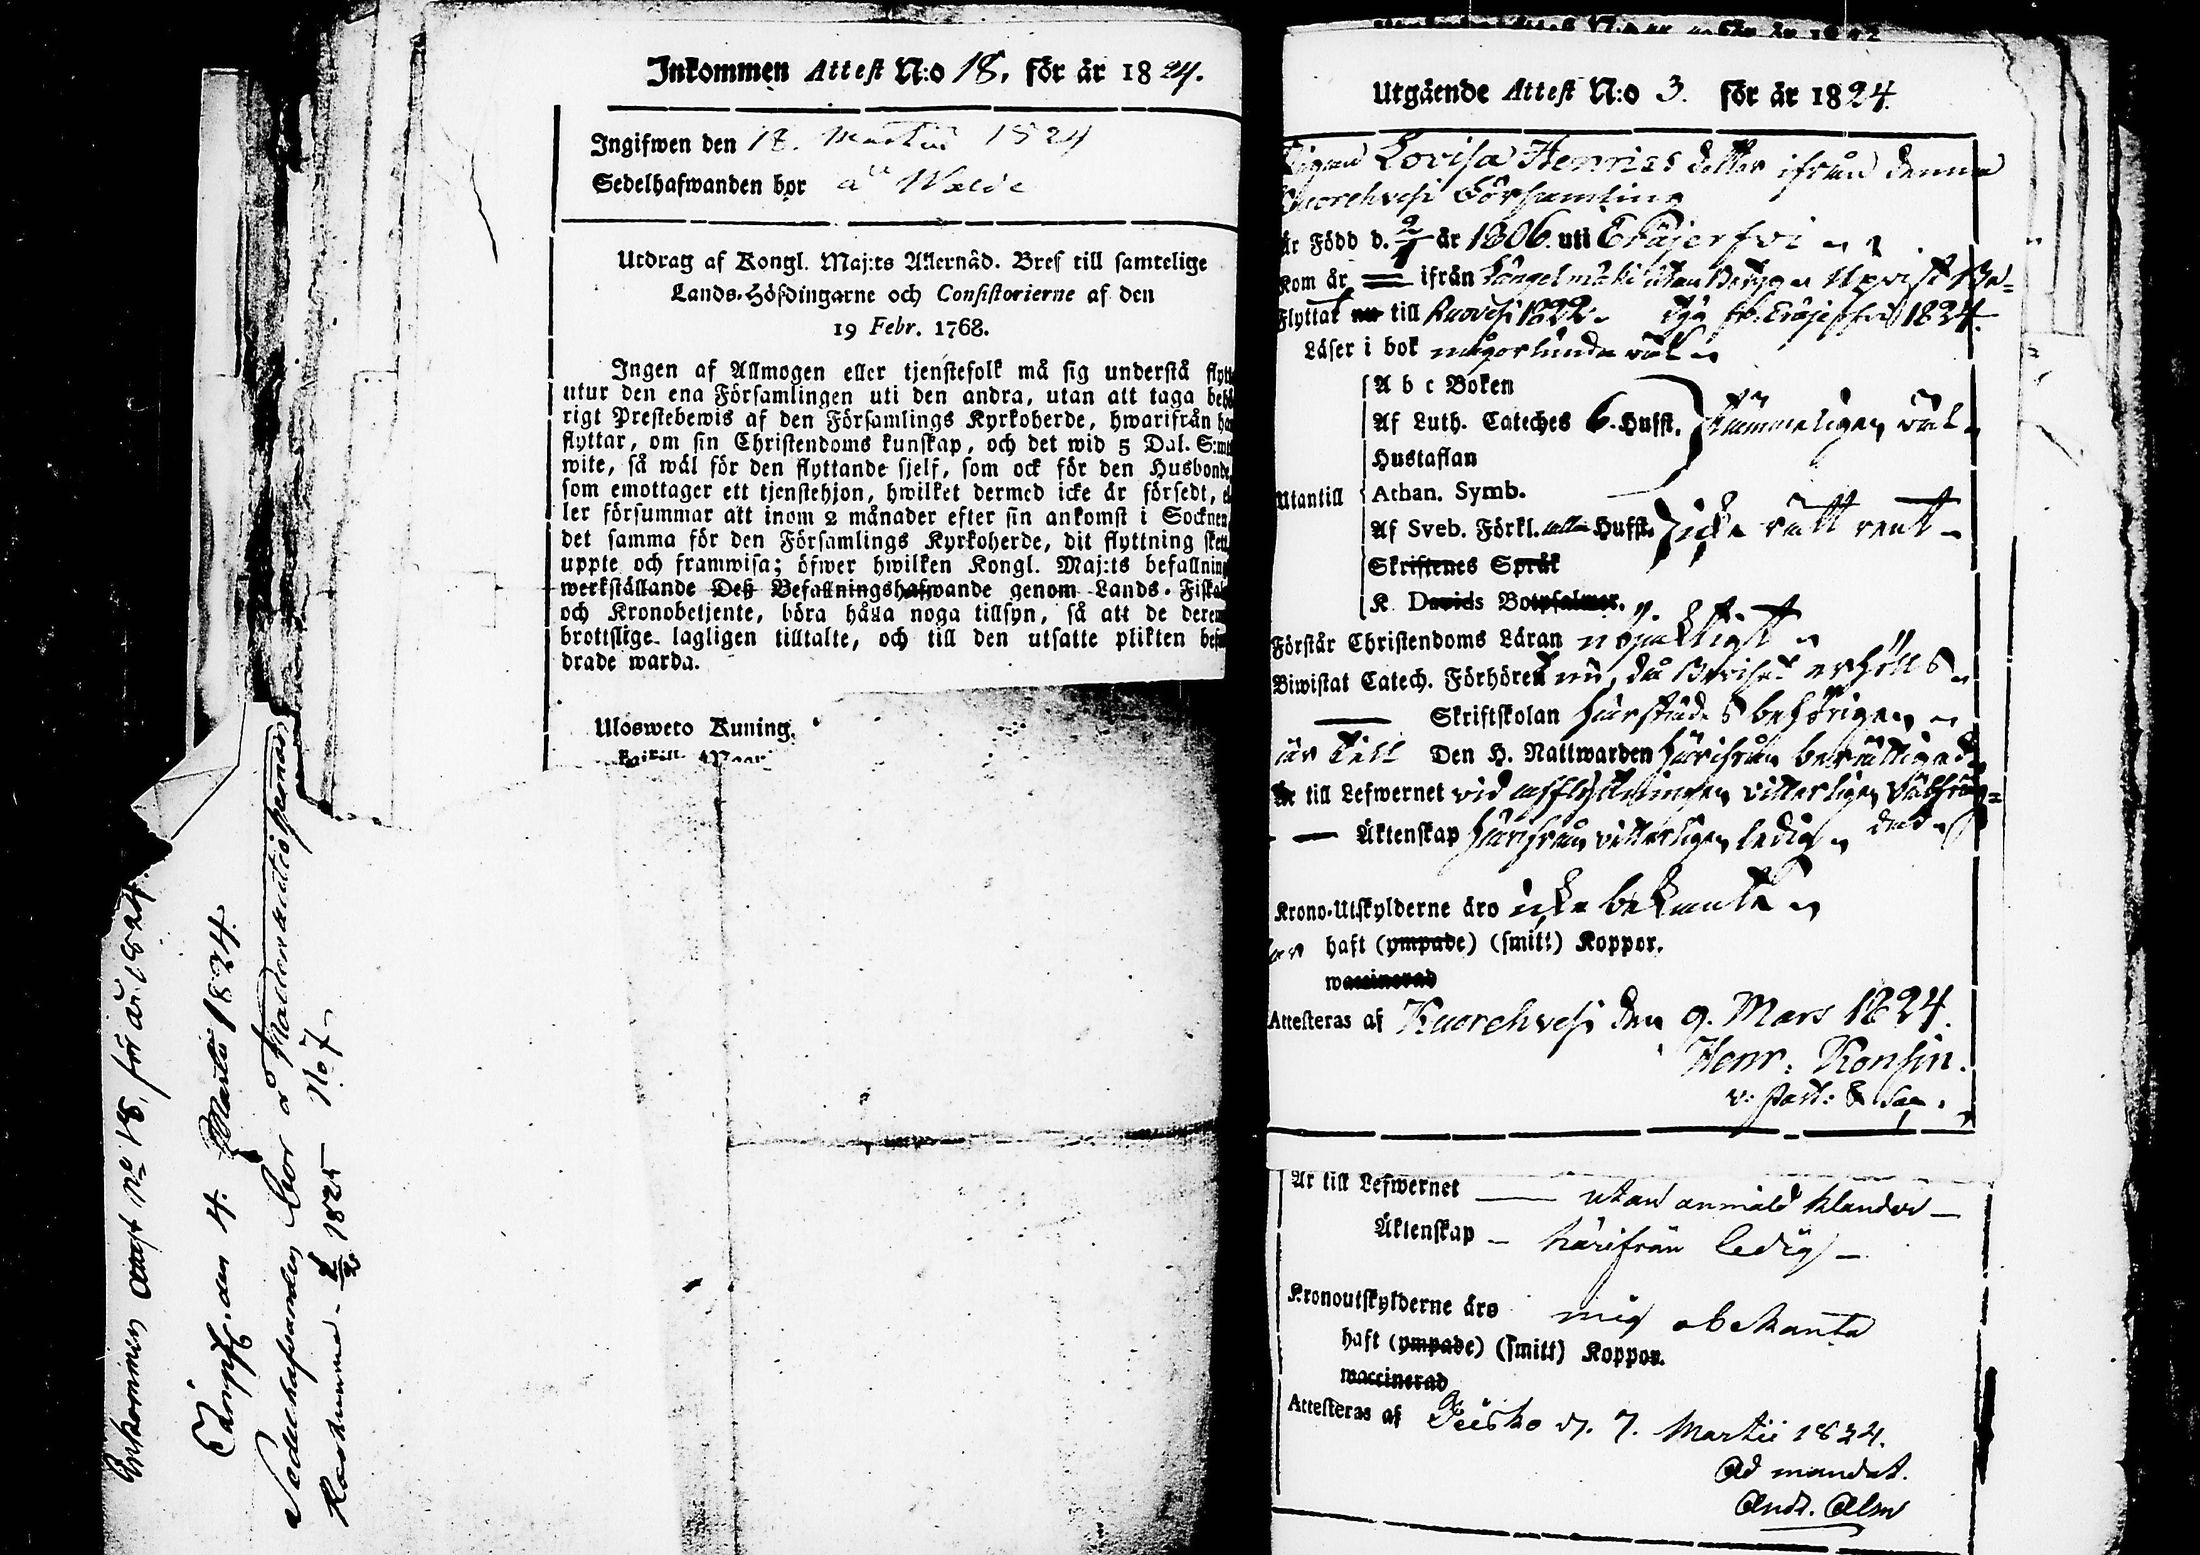 Inkommen Attest N:o 18, för år 1824.
Ingifwen den 18. Martii 1824
Sedelhafwanden bor å Walde
Utdrag af Kongl. Maj:ts Allernåd. Bref till samtelige
Lands-Höfdingarne och Consistorierne af den
19 Febr. 1768.
Ingen af Allmogen eller tjenstefolk må sig understå
utur den ena Församlingen uti den andra, utan att taga
rigt Prestebewis af den Församlings Kyrkoherde, hwarifrån
flyttar, om sin Christendoms kunskap, och det wid 5 Dal. S:mt
wite, så wäl för den flyttande sjelf, som ock för den Husbonde,
som emottager ett tjenstehjon, hwilket dermed icke är försedt,
ler försummar att inom 2 månader efter sin ankomst i Socknen
det samma för den Församlings Kyrkoherde, dit flyttning
uppte och framwisa; öfwer hwilken Kongl. Maj:ts befallning
werkställande Deß Befallningshafwande genom Lands-
och Kronobetjente, böra hålla noga tillsyn, så att de
brottslige lagligen tilltalte, och till den utsatte plikten
drade warda.
Ulosweto Kuning.
Inkommen Attest No 18, för år 1824.
den 4. Martii 1824.
Sedelhafvanden bor å
1825 No 7
Utgående Attest N:o 3. för år 1824.
Pigan Lovisa Henricsdotter ifrån denna
Kuorehvesi Församling
är Född d. 2/1 år 1806. uti Eräjerfvi
Kom år ifrån Längelmäki utan
Flyttat nu till Ruovesi 1822. 1824.
Läser i bok någorlunda väl
A b c Boken
Af Luth. Cateches 6. Hufst. tämmeligen väl
Hustaflan
Utantill Athan. Symb.
Af Sveb. Förkl. alla Hufst. icke rätt rent
Skriftenes Språk
K Davids Botpsalmer.
Förstår Christendoms Läran nöjaktigt
Biwistat Catech. Förhöret nu, då Beviset erhölls
Skriftskolan härstädes behörigen
är till Den H. Nattwarden härifrån berättigad
till Lefwernet vid afflyttningen vitterligen
Äktenskap härifrån vitterligen ledig
Krono-Utskylderne äro icke bekanta
har haft (ympade) (smitt) Koppor.
waccinerad
Attesteras af Kuorehvesi den 9. Mars 1824.
Henr. Konsin.
v. Past. & Sac.
Är till Lefwernet utan anmäld klander
Äktenskap härifrån ledig
Kronoutskylderne äro mig obekanta
haft (ympade) (smitt) Koppor.
waccinerad
Attesteras af d. 7. Martii 1824.
Ad mandat.
And. Alm